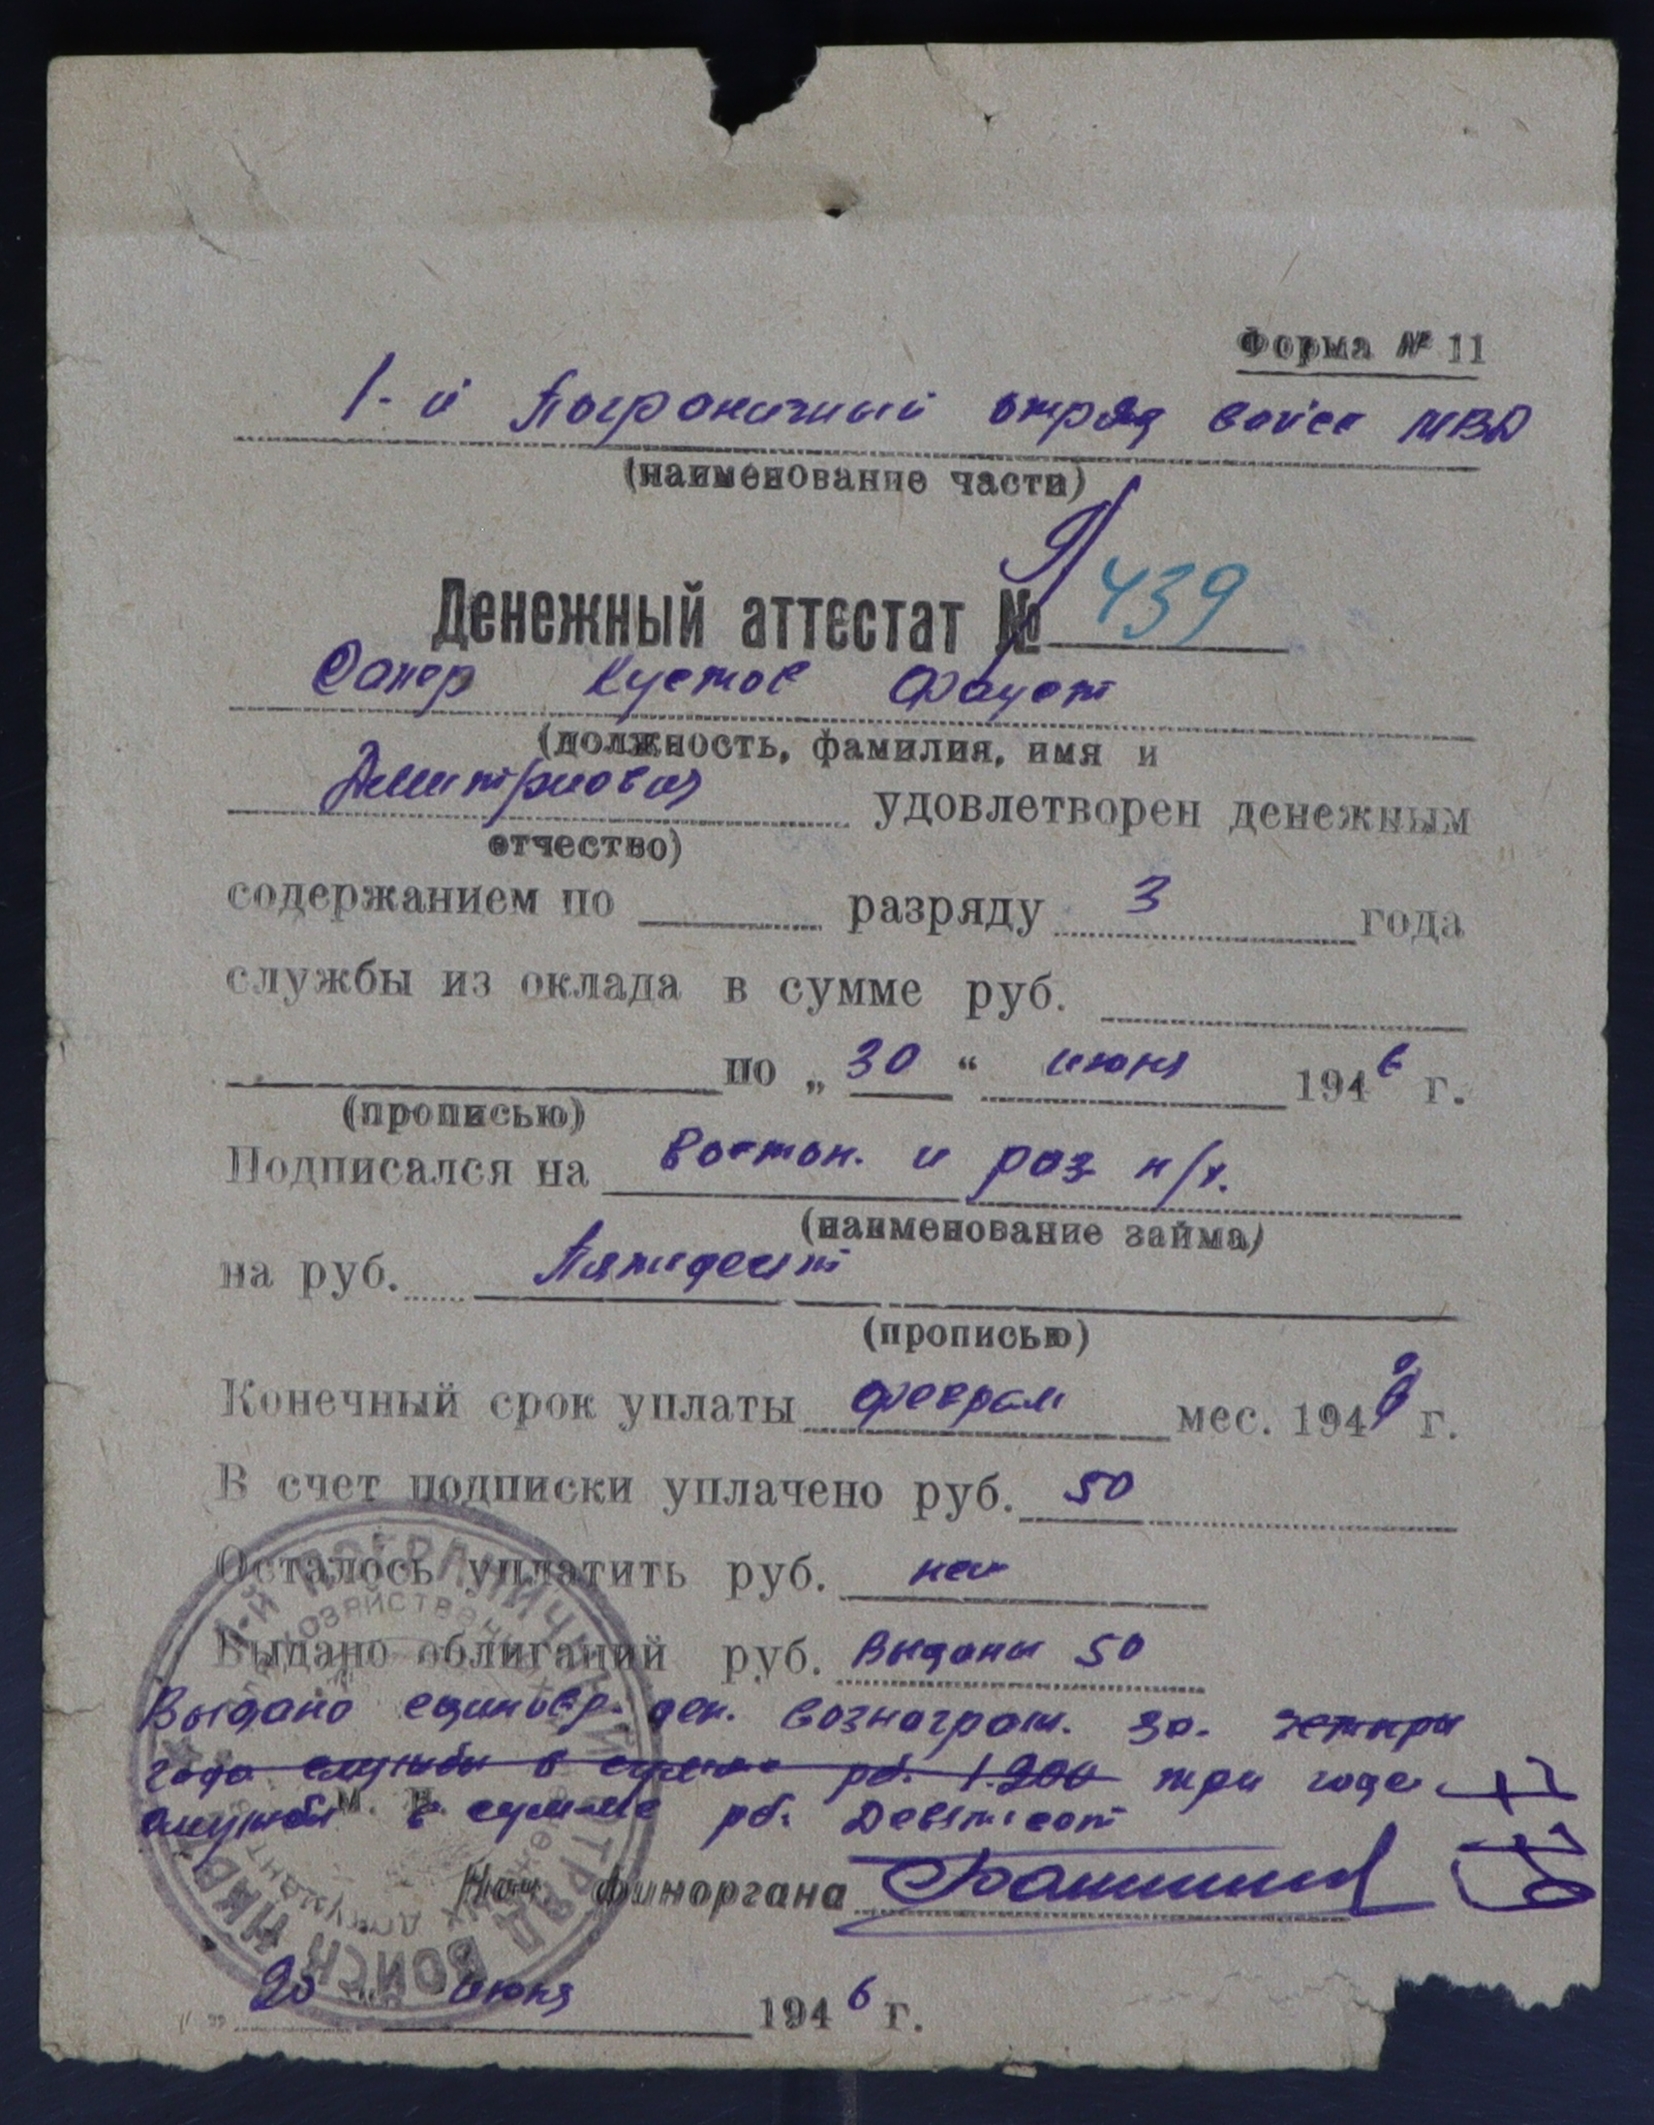 Форма № 11
1-й Пограничный отряд войск МВД
(наименование части)
Денежный аттестат № 439
Сапер Кустов Фауст
(должность, фамилия, имя и
Дмитриевич удовлетворен денежным
отчество)
содержанием по разряду 3 года
службы из оклада в сумме руб.
по „30“ июня 1946 г.
(прописью)
Подписался на восстан. и раз н/х.
(наименование займа)
на руб. Пятьдесят
(прописью)
Конечный срок уплаты февраль мес. 194 г.
В счет подписки уплачено руб. 50
Осталось уплатить руб. нет
Выдано облигаций руб. Выданы 50
Выдано единовр. ден. вознаграж. за. четыры
года службы в сумме рб. 1.200 три года
службы в сумме рб. Девятьсот
М. П.
Нач финоргана
20 июня 1946 г.
1-й ПОГРАНИЧНЫЙ ОТРЯД ВОЙСК НКВД